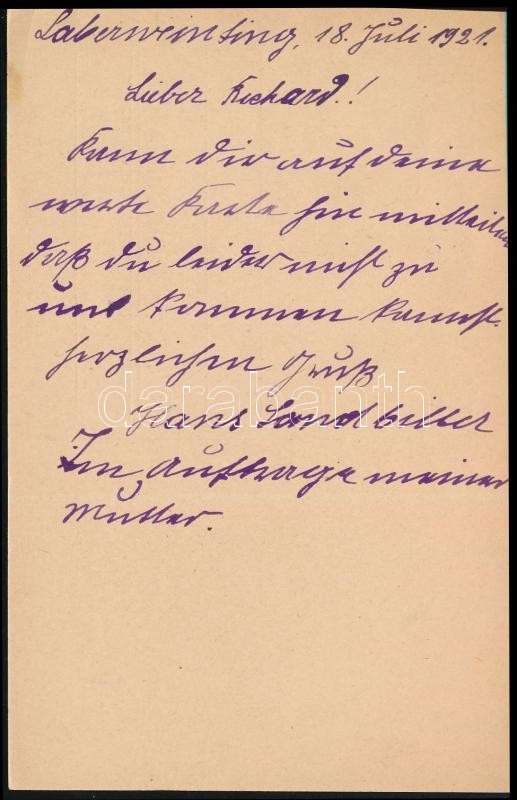 Laberweinting, 18. Juli 1921.
Lieber Richard.!
Kann dir auf deine
werte Karte hin mitteilen
daß du leider nicht zu
uns kommen kannst.
herzlichen Gruß
darabanth
Hans Landbiller
Im Auftrage meiner
Mutter.